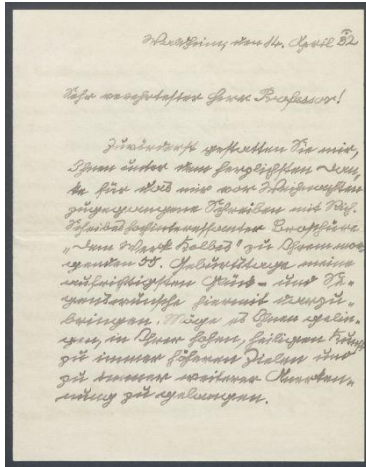 Waldheim, den 14. April 32
Sehr verehrtester Herr Professor!
Zuvörderst gestatten Sie mir,
Ihnen unter dem herzlichsten Dan-
ke für das mir vor Weihnachten
zugegangene Schreiben mit
hochinteressanter Broschüre
„Dem Werk Kolbes" zu Ihrem mor-
genden 55. Geburtstage meine
aufrichtigsten Glück- und Se-
genswünsche hiermit darzu-
bringen. Möge es Ihnen gelin-
gen, in Ihrer hohen, heiligen Kunst
zu immer höheren Zielen und
zu immer weiterer Anerken-
nung zu gelangen.